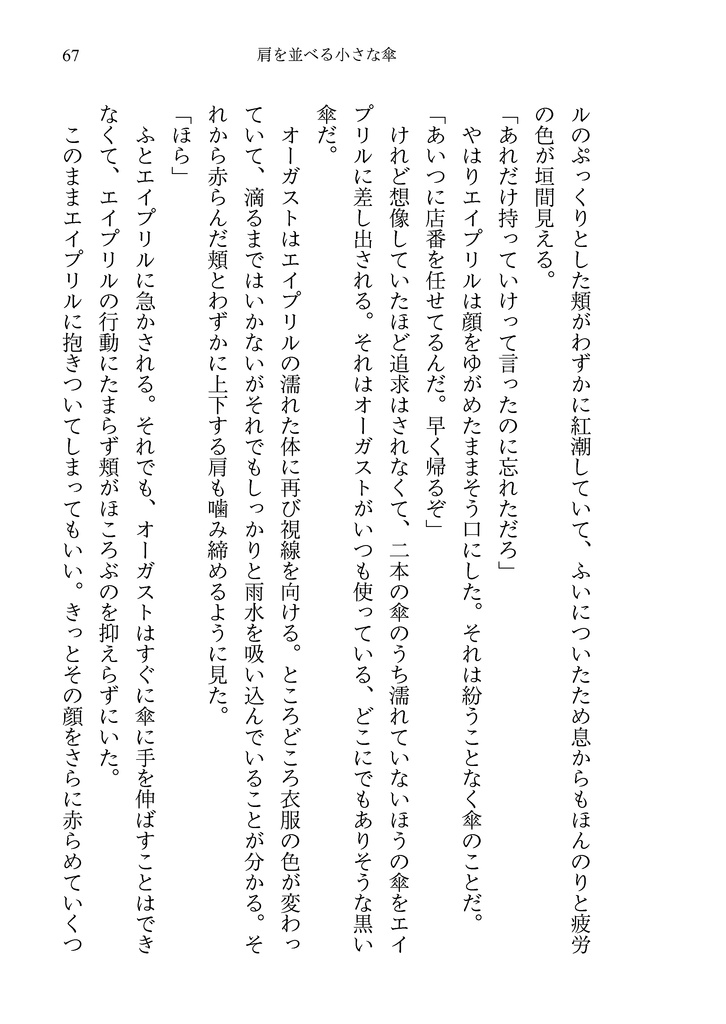 67
肩を並べる小さな傘
ルのぷっくりとした頬がわずかに紅潮していて、ふいについたため息からもほんのりと疲労
の色が垣間見える。
「あれだけ持っていけって言ったのに忘れただろ」
やはりエイプリルは顔をゆがめたままそう口にした。それは紛うことなく傘のことだ。
「あいつに店番を任せてるんだ。早く帰るぞ」
けれど想像していたほど追求はされなくて、二本の傘のうち濡れていないほうの傘をエイ
プリルに差し出される。それはオーガストがいつも使っている、どこにでもありそうな黒い
傘だ。
オーガストはエイプリルの濡れた体に再び視線を向ける。ところどころ衣服の色が変わっ
ていて、滴るまではいかないがそれでもしっかりと雨水を吸い込んでいることが分かる。そ
れから赤らんだ頬とわずかに上下する肩も噛み締めるように見た。
「ほら」
ふとエイプリルに急かされる。それでも、オーガストはすぐに傘に手を伸ばすことはでき
なくて、エイプリルの行動にたまらず頬がほころぶのを抑えらずにいた。
このままエイプリルに抱きついてしまってもいい。きっとその顔をさらに赤らめていくつ